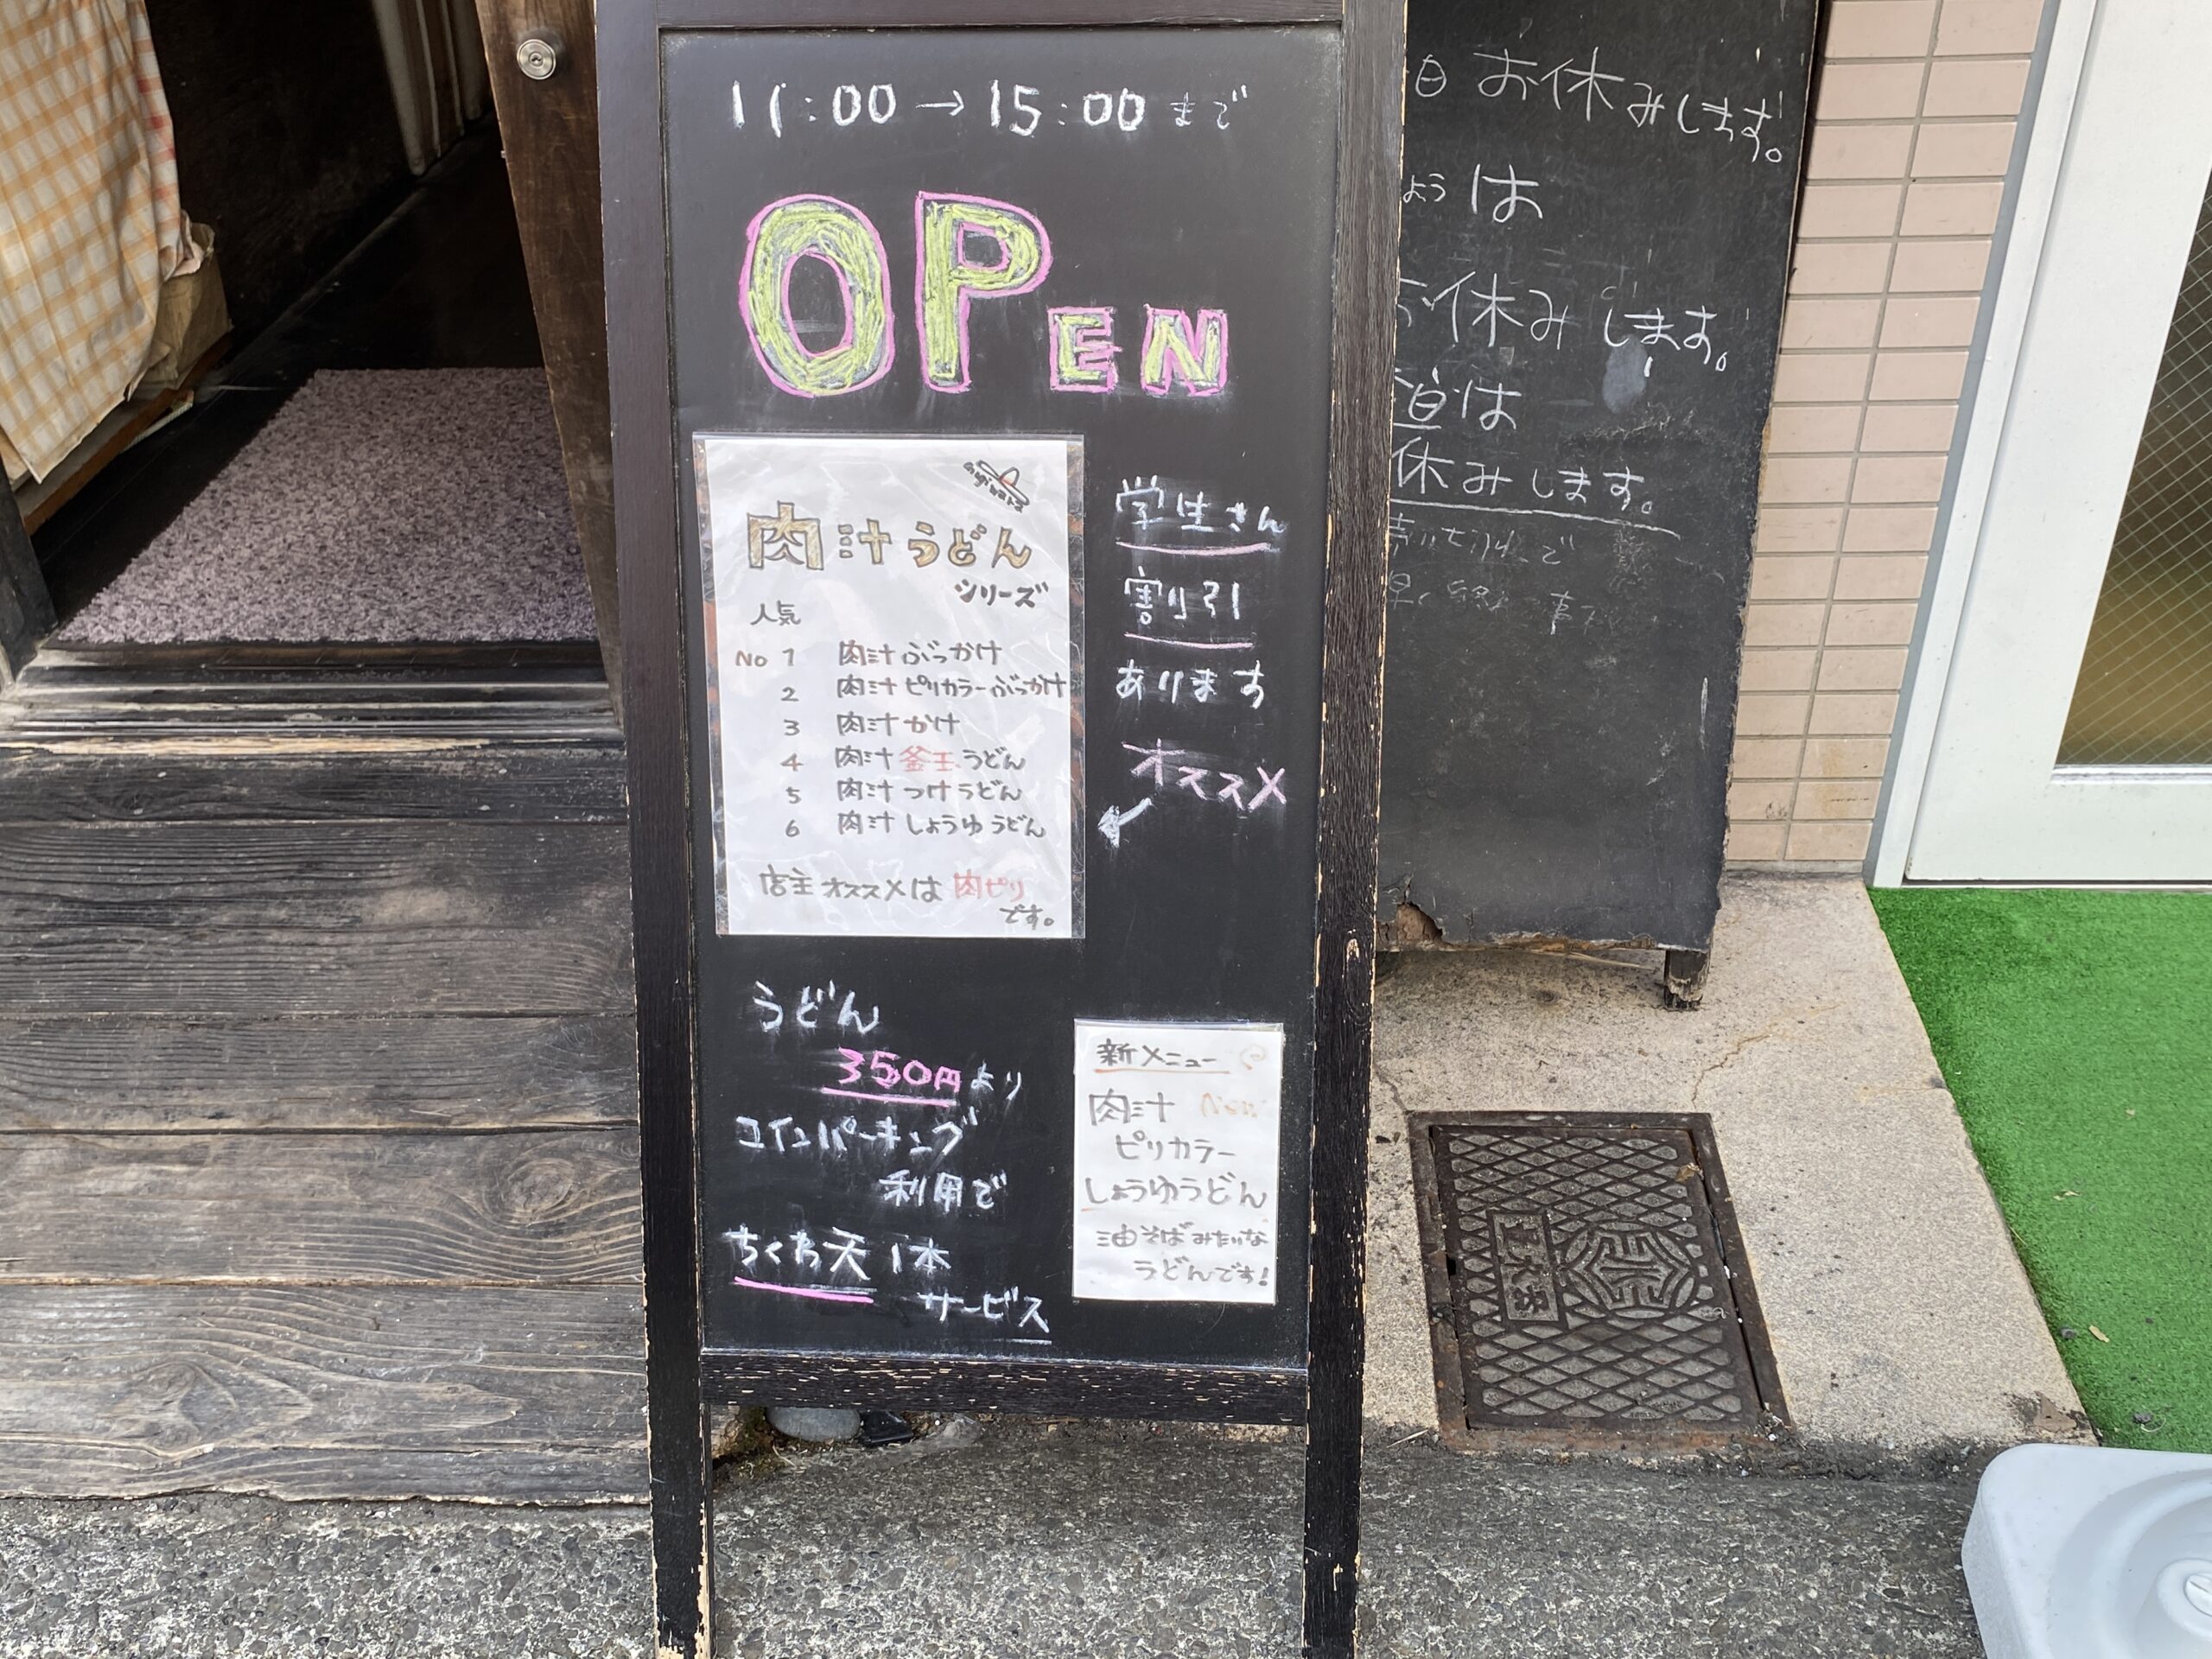 11:00→15:00まで
OPEN
肉汁うどん
シリーズ
人気
No 1 肉汁ぶっかけ
2 肉汁ピリカラーぶっかけ
3 肉汁かけ
4 肉汁釜玉うどん
5 肉汁つけうどん
6 肉汁しょうゆうどん
店主オススメは肉ピリ
です。
学生さん
割引
あります
オススメ
うどん
350円より
コインパーキング
利用で
ちくわ天1本
サービス
新メニュー
肉汁 New
ピリカラー
しょうゆうどん
油そばみたいな
うどんです!
日お休みします。
は
お休みします。
は
休みします。